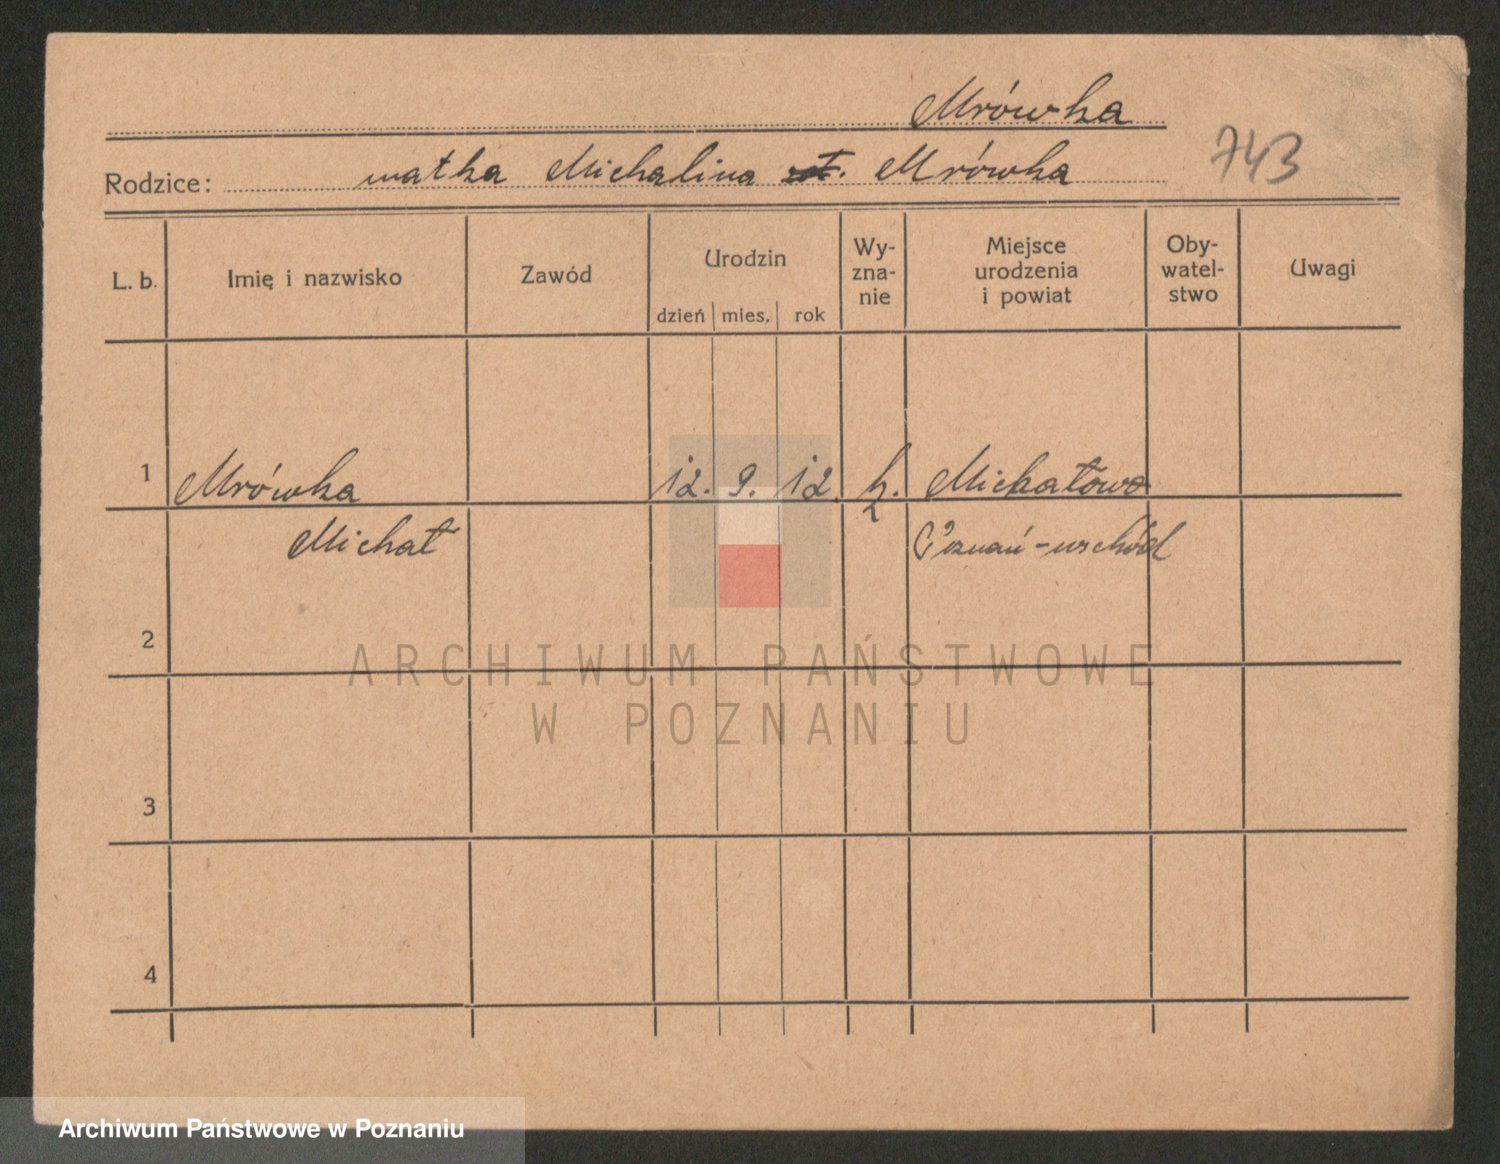 Mrówka
743
Rodzice: matka Michalina Mrówka
L. b. Imię i nazwisko Zawód Urodzin Wy- Miejsce Oby- Uwagi
zna- urodzenia watel-
nie i powiat stwo
dzień mies. rok
1 Mrówka 12. 9. 12. k. Michałowo
Michał Poznań-wschód
2
ARCHIWUM PAŃSTWOWE
W POZNANIU
3
4
Archiwum Państwowe w Poznaniu